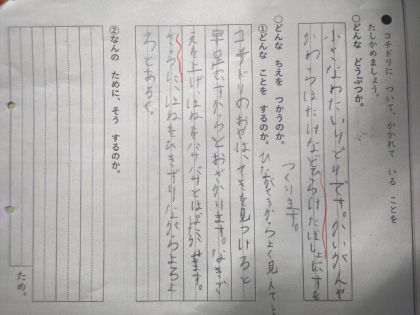 ● コチドリに ついて、かかれて いる ことを
たしかめましょう。
○どんな どうぶつか。
小さなめだいいとりです。かいがんや
かわらはたけなどひらけたばしょにすを
つくります。
○どんな ちえを つかうのか。
①どんな ことを するのか。
コチドリのおやは、てきを見つけると
早足ですからとおざかります。なきご
えを上げ、はねをバサバサとはばたかせます。
さらに、はねをひきずりながらよろよ
ろとあるく。
②なんの ために、そう するのか。
ため。